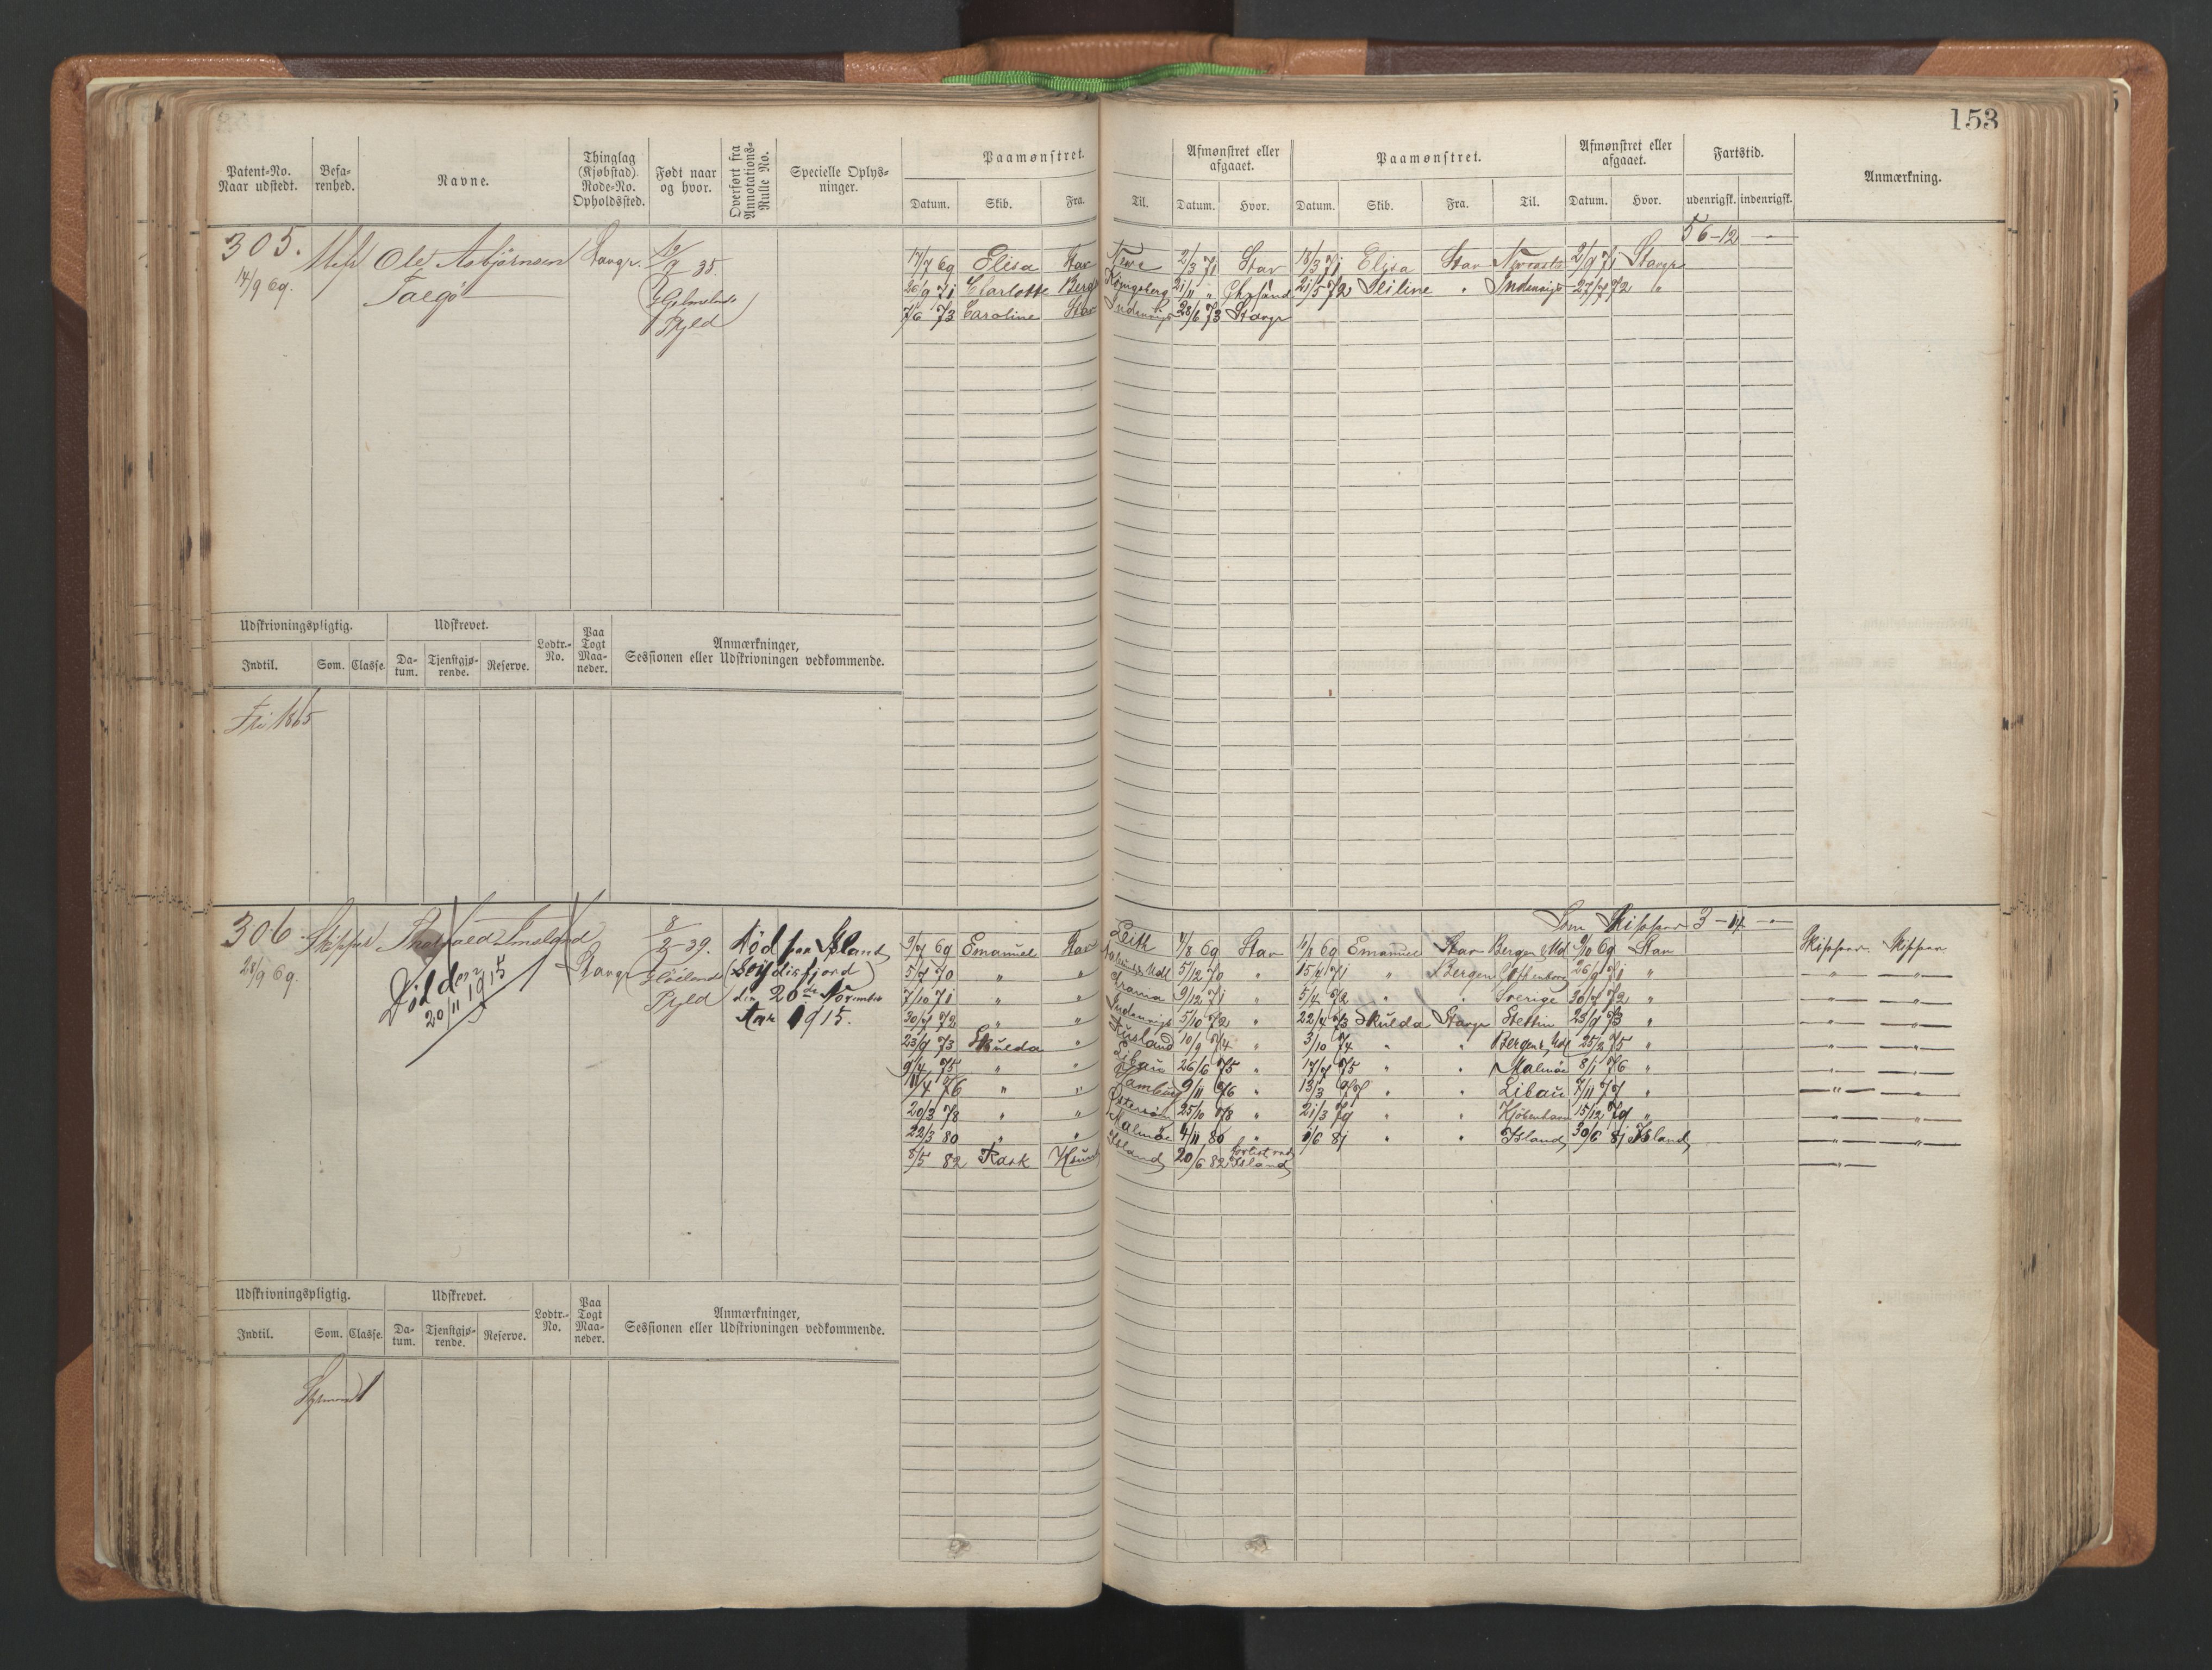 153
Patent-No. Naar udstedt.
Befa-renhed.
Navne.
Thinglag (Kjøbstad). Rode-No. Opholdssted.
Født naar og hvor.
Overført fra Annotations-Rulle No.
Specielle Oplys-ninger.
Paamønstret.
Afmønstret eller afgaaet.
Paamønstret.
Afmønstret eller afgaaet.
Fartstid.
Anmærkning.
Datum. Skib. Fra. Til. Datum. Hvor. Datum. Skib. Fra. Til. Datum. Hvor. udenrigsk. indenrigsk.
56-12 -
305. Ole Asbjørnsen Stavgr. 35.
14/9 69.
Ryld
17/7 69 Elisa Stav 2/3 71 Stav 18/3 71 Elisa Stav 2/9 71 Stavgr
26/9 71 Charlotte Berg Königsberg 21/11 " Chrsand 21/5 72 " Indenrigs 27/7 72 "
7/6 73 Caroline Stav Indenrigs 28/6 73 Stavgr
Udskrivningspligtig. Udskrevet. Lodtr.-No. Paa Togt Maa-neder. Anmærkninger, Sessionen eller Udskrivningen vedkommende.
Indtil. Som. Classe. Da-tum. Tjenstgjø-rende. Reserve.
Fri 1865
Skipper 3-14 -
306. Skipper Stavgr 8/2-39.
28/9 69.
Ryld
Död den 20/11 1915
Död paa Island
(Seydisfjord)
den 20de November
Aar 1915.
3/7 69 Emanuel Stav Leith 7/8 69 Stav 11/8 69 Emanuel Stav Bergen & Udl 9/10 69 Stav Skipper Skipper
5/7 70 " " 5/12 70 " 15/4 71 " Bergen Gothenborg 26/9 71 " " "
7/10 71 " " 9/12 71 " 5/4 72 " " Sverige 30/7 72 " " "
30/7 72 " " Indenrigs 5/10 72 " 22/4 73 Skulda Stavgr Stettin 23/9 73 " " "
23/9 73 Skulda " Rusland 10/9 74 " 3/10 74 " " Bergen & Udl 25/3 75 " " "
9/4 75 " " Libau 26/6 75 " 17/7 75 " " Malmöe 8/1 76 " " "
11/4 76 " " Hamburg 9/11 76 " 13/3 77 " " Libau 7/11 77 " " "
20/3 78 " " Østersøen 25/10 78 " 21/3 79 " " Kjøbenhavn 15/12 79 " " "
22/3 80 " " Malmöe 4/11 80 " 1/6 81 " " Island 30/6 81 Island " "
8/5 82 Rask Island 20/6 82 forlist ved Island "
Udskrivningspligtig. Udskrevet. Lodtr.-No. Paa Togt Maa-neder. Anmærkninger, Sessionen eller Udskrivningen vedkommende.
Indtil. Som. Classe. Da-tum. Tjenstgjø-rende. Reserve.